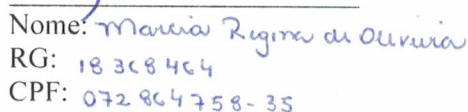 Nome: Marcia Regina de Oliveira
RG: 18368464
CPF: 072864758-35